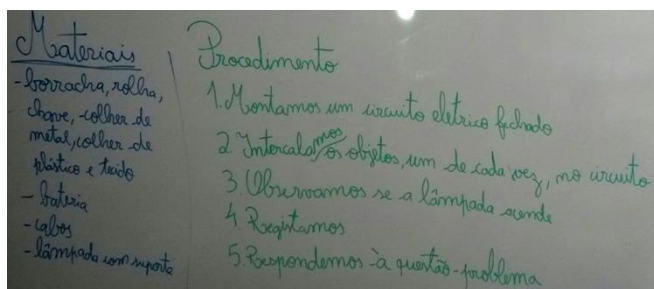 Materiais
- borracha, rolha,
chave, colher de
metal, colher de
plástico e tecido
- bateria
- cabos
- lâmpada com suporte
Procedimento
1. Montamos um circuito eletrico fechado
2 Intercalamos os objetos, um de cada vez, no circuito
3. Observamos se a lâmpada acende
4. Registamos
5. Respondemos à questão-problema